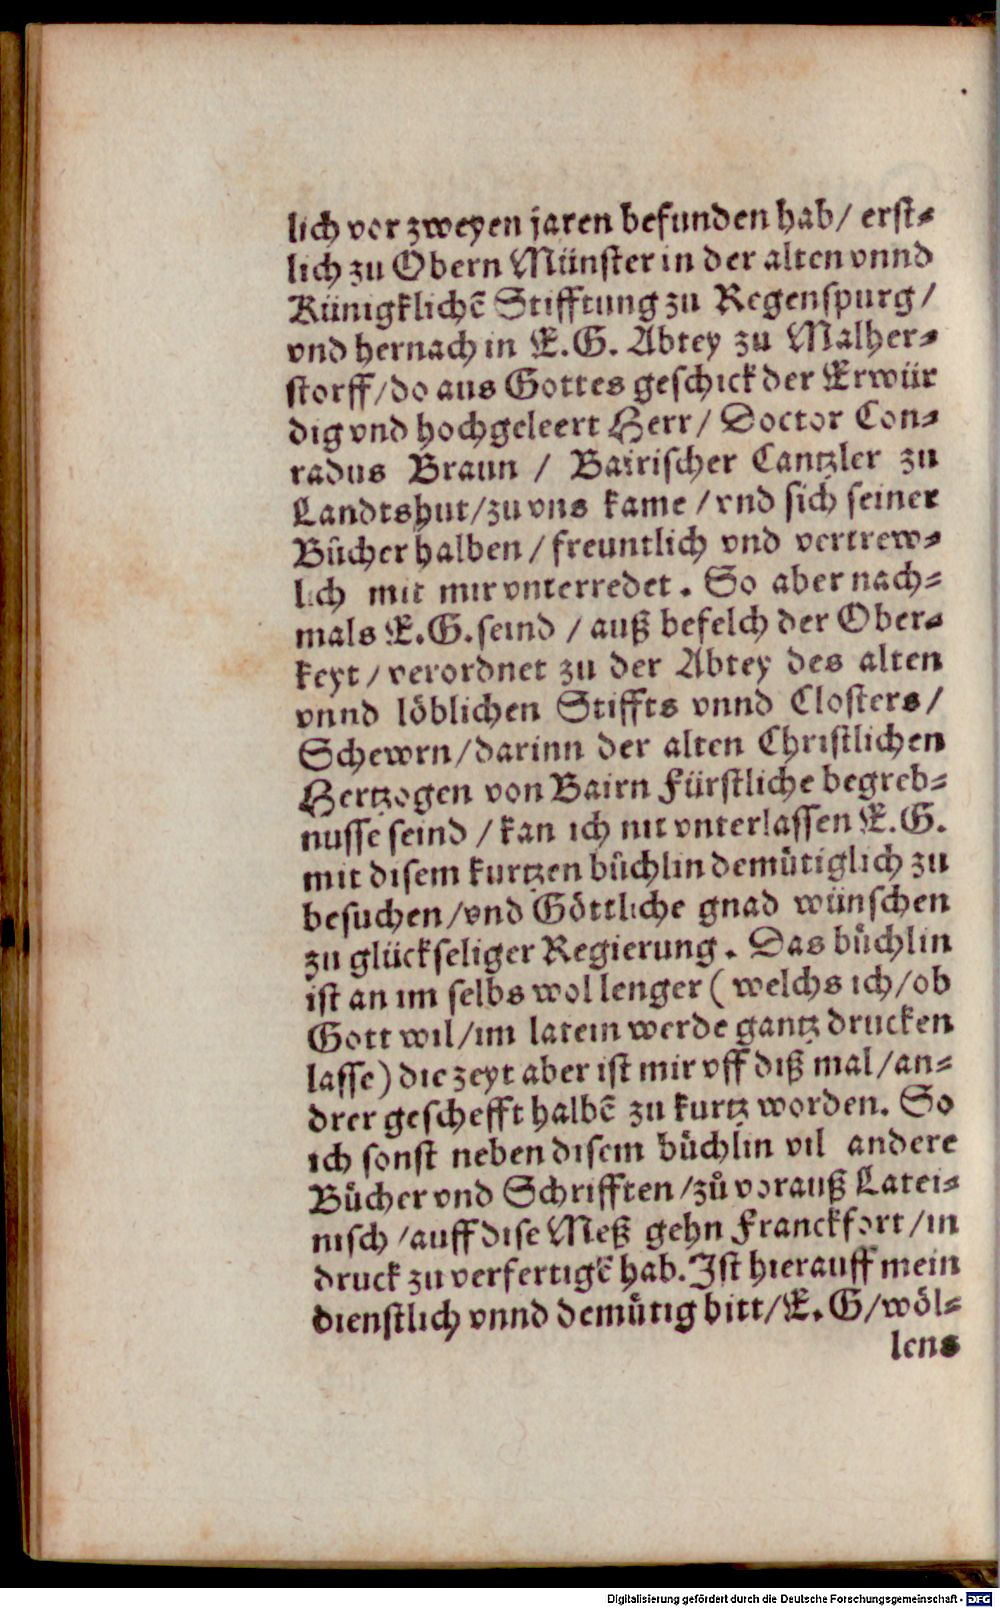 lich vor zweyen jaren befunden hab/ erst⸗
lich zu Obern Münster in der alten vnnd
Künigklichē Stifftung zu Regenspurg/
vnd hernach in E.G. Abtey zu Malher⸗
storff/do aus Gottes geschick der Erwür
dig vnd hochgeleert Herr/ Doctor Con⸗
radus Braun / Bairischer Cantzler zu
Landtshut/zu vns kame/vnd sich seiner
Bücher halben/freuntlich vnd vertrew⸗
lich mit mir vnterredet. So aber nach⸗
mals E.G.seind / auß befelch der Ober⸗
keyt/verordnet zu der Abtey des alten
vnnd löblichen Stiffts vnnd Closters/
Schewrn/darinn der alten Christlichen
Hertzogen von Bairn Fürstliche begreb⸗
nusse seind/kan ich nit vnterlassen E.G.
mit disem kurtzen büchlin demütiglich zu
besuchen/vnd Göttliche gnad wünschen
zu glückseliger Regierung. Das büchlin
ist an im selbs wol lenger (welchs ich/ob
Gott wil/im latein werde gantz drucken
lasse) die zeyt aber ist mir vff diß mal/an⸗
drer geschefft halbē zu kurtz worden. So
ich sonst neben disem büchlin vil andere
Bücher vnd Schrifften/zů vorauß Latei⸗
nisch/auff dise Meß gehn Franckfort/in
druck zu verfertigē hab. Ist hierauff mein
dienstlich vnnd demütig bitt/E.G/wöl⸗
lens
Digitalisierung gefördert durch die Deutsche Forschungsgemeinschaft - DFG